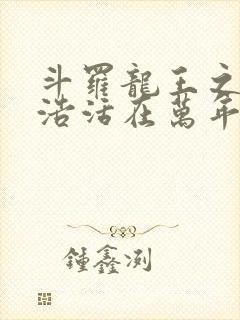 斗羅龍王之
浩活在萬年
鍾鑫浏